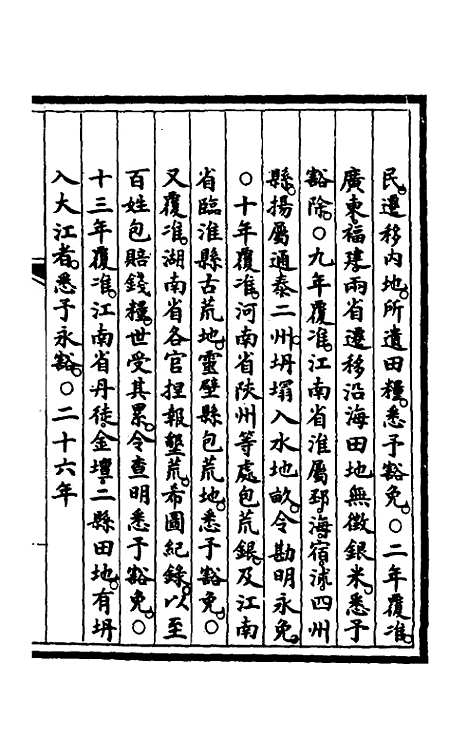 民。遷移內地。所遺田糧。悉予豁免。○二年覆准。
廣東福建兩省遷移沿海田地無徵銀米。悉予
豁除。○九年覆准。江南省淮屬邳海宿沭四州
縣。揚屬通泰二州。坍塌入水地畝。令勘明永免。
○十年覆准。河南省陝州等處包荒銀。及江南
省臨淮縣古荒地。靈壁縣包荒地。悉予豁免。○
又覆准。湖南省各官捏報墾荒。希圖紀錄。以至
百姓包賠錢糧。世受其累。令查明悉予豁免。○
十三年覆准。江南省丹徒金壇二縣田地。有坍
入大江者。悉予永豁。○二十六年